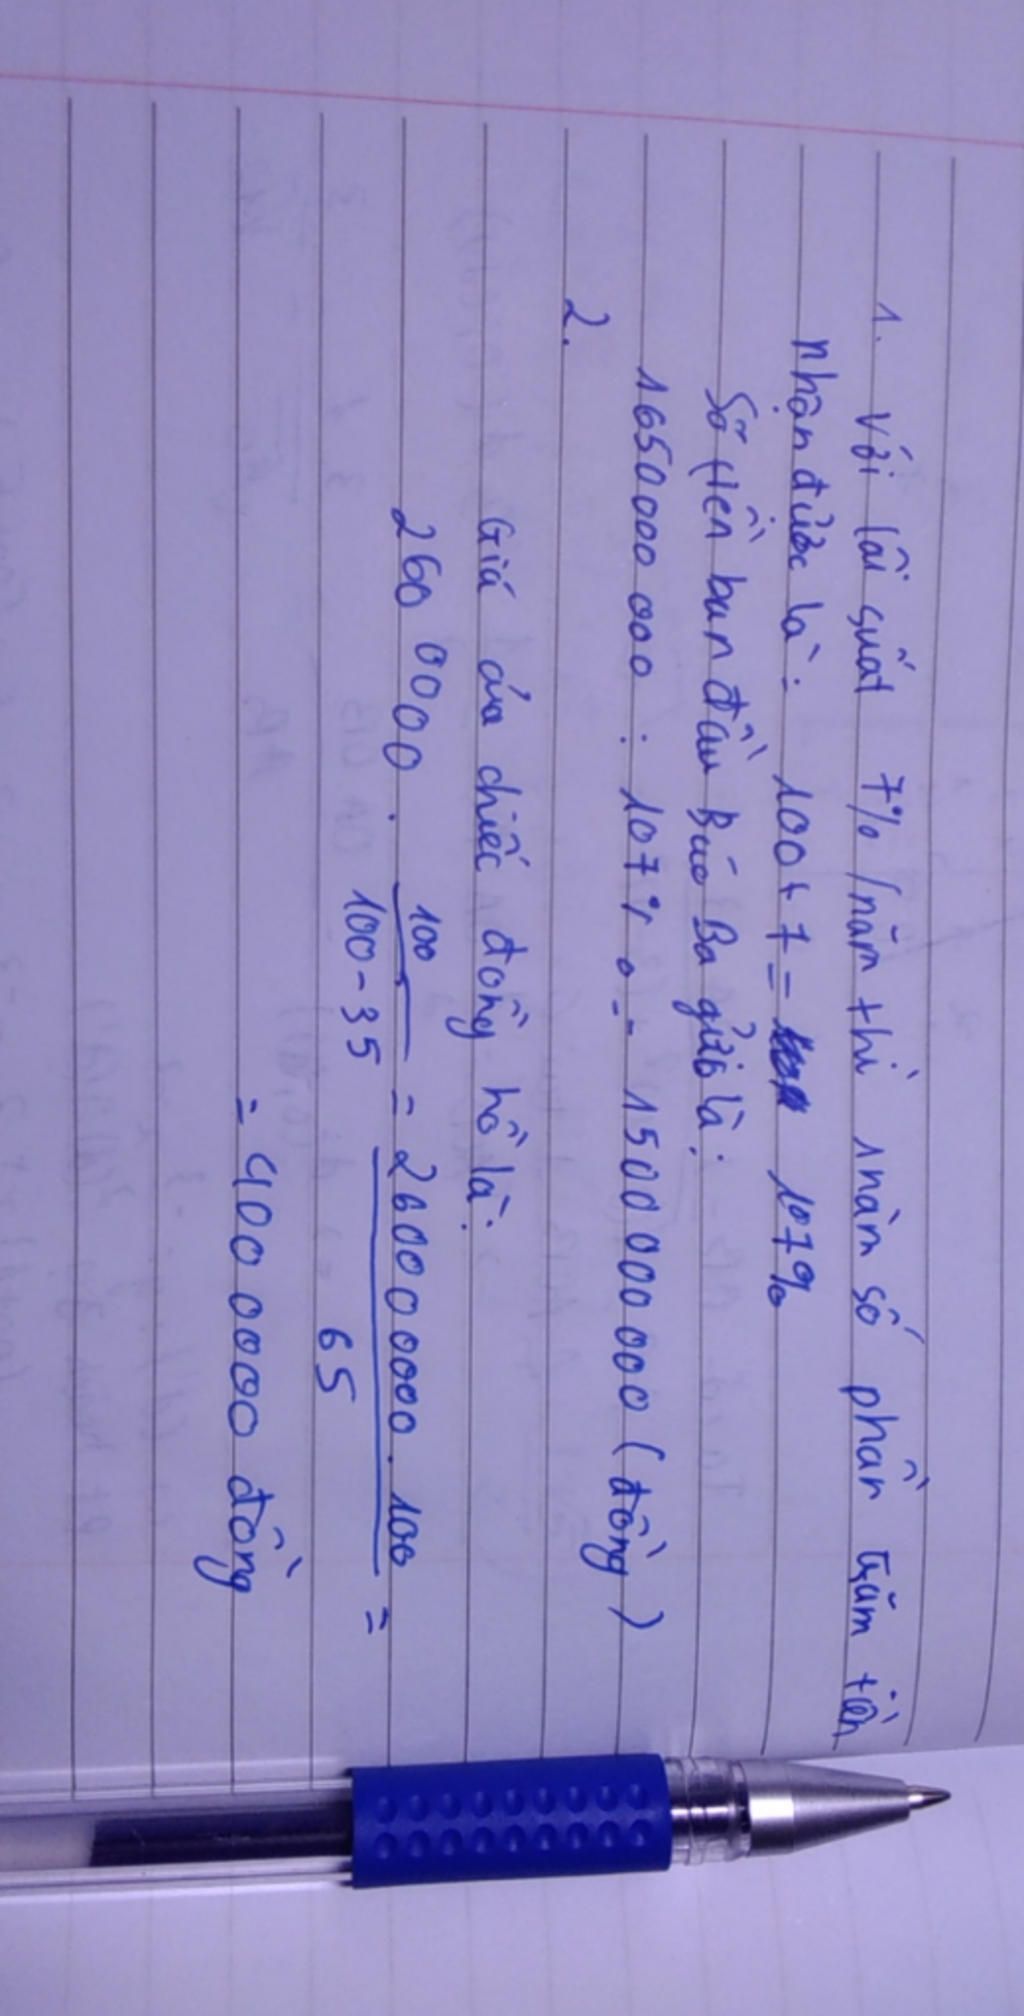 1. Với lãi suất 7% /năm thì 1 năm số phần trăm tiền
nhận được là: 100 + 7 = 107%
Số tiền ban đầu Bác Ba gửi là:
1650000 000 : 107% = 1500 000 000 (đồng)
2.
Giá của chiếc đồng hồ là:
260 0000 . 100 / 100 - 35 = 2600 0000 . 100 / 65 =
= 400 0000 đồng